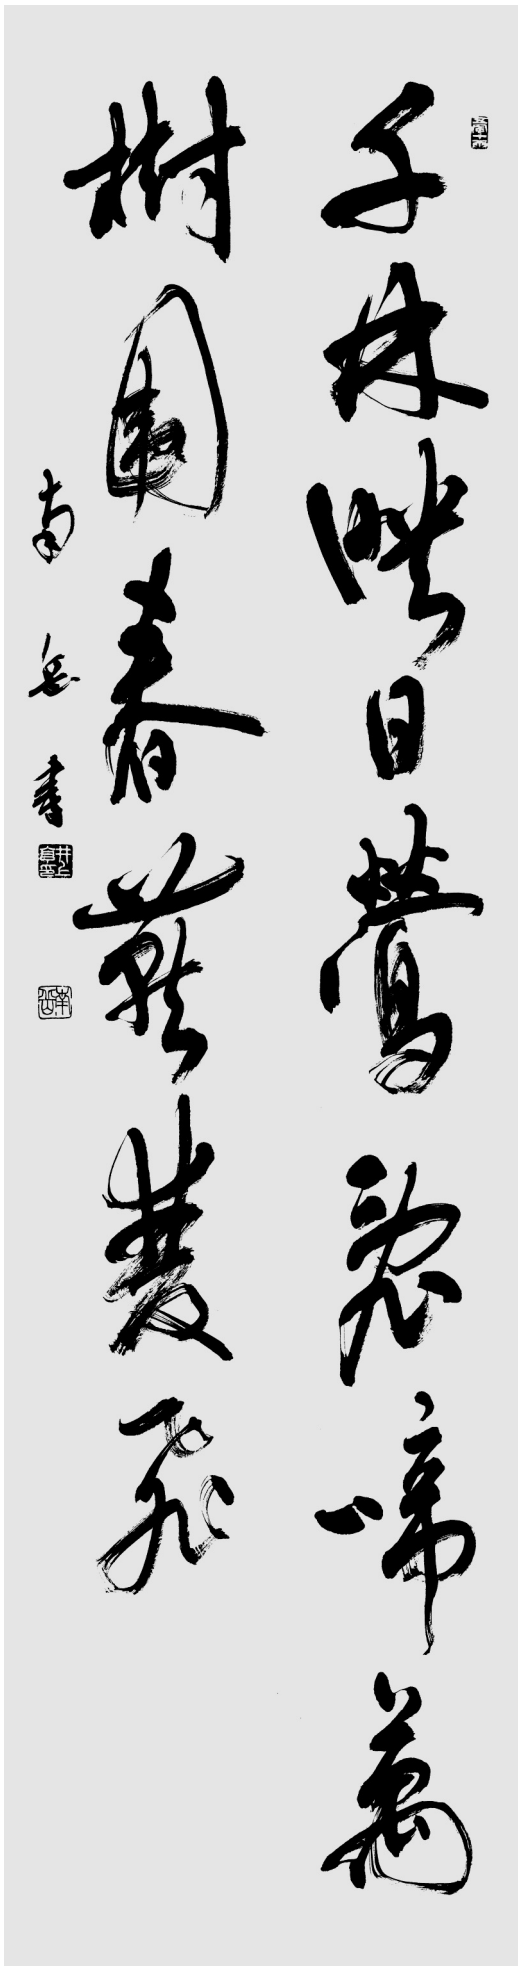 千林映日鶯亂啼萬
樹圍春燕雙飛
南岳書